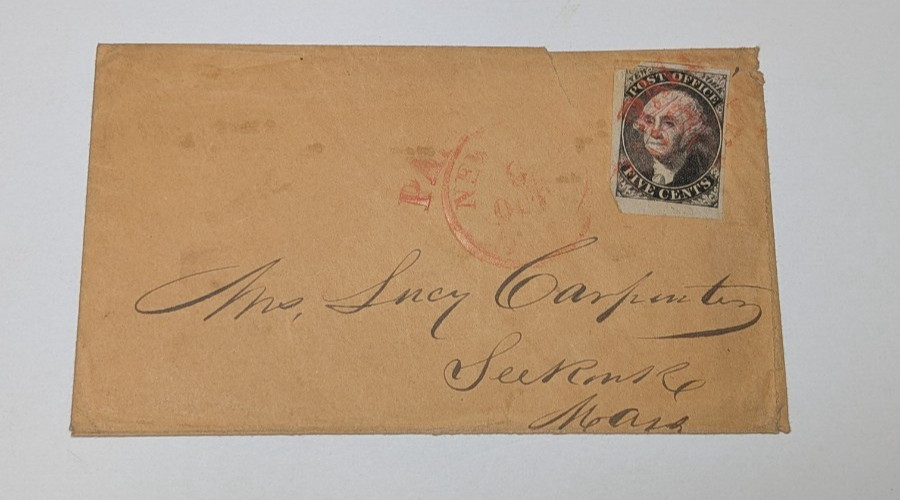 POST OFFICE
FIVE CENTS
PA
NE
Mrs. Lucy Carpenter
Seekonk
Mass